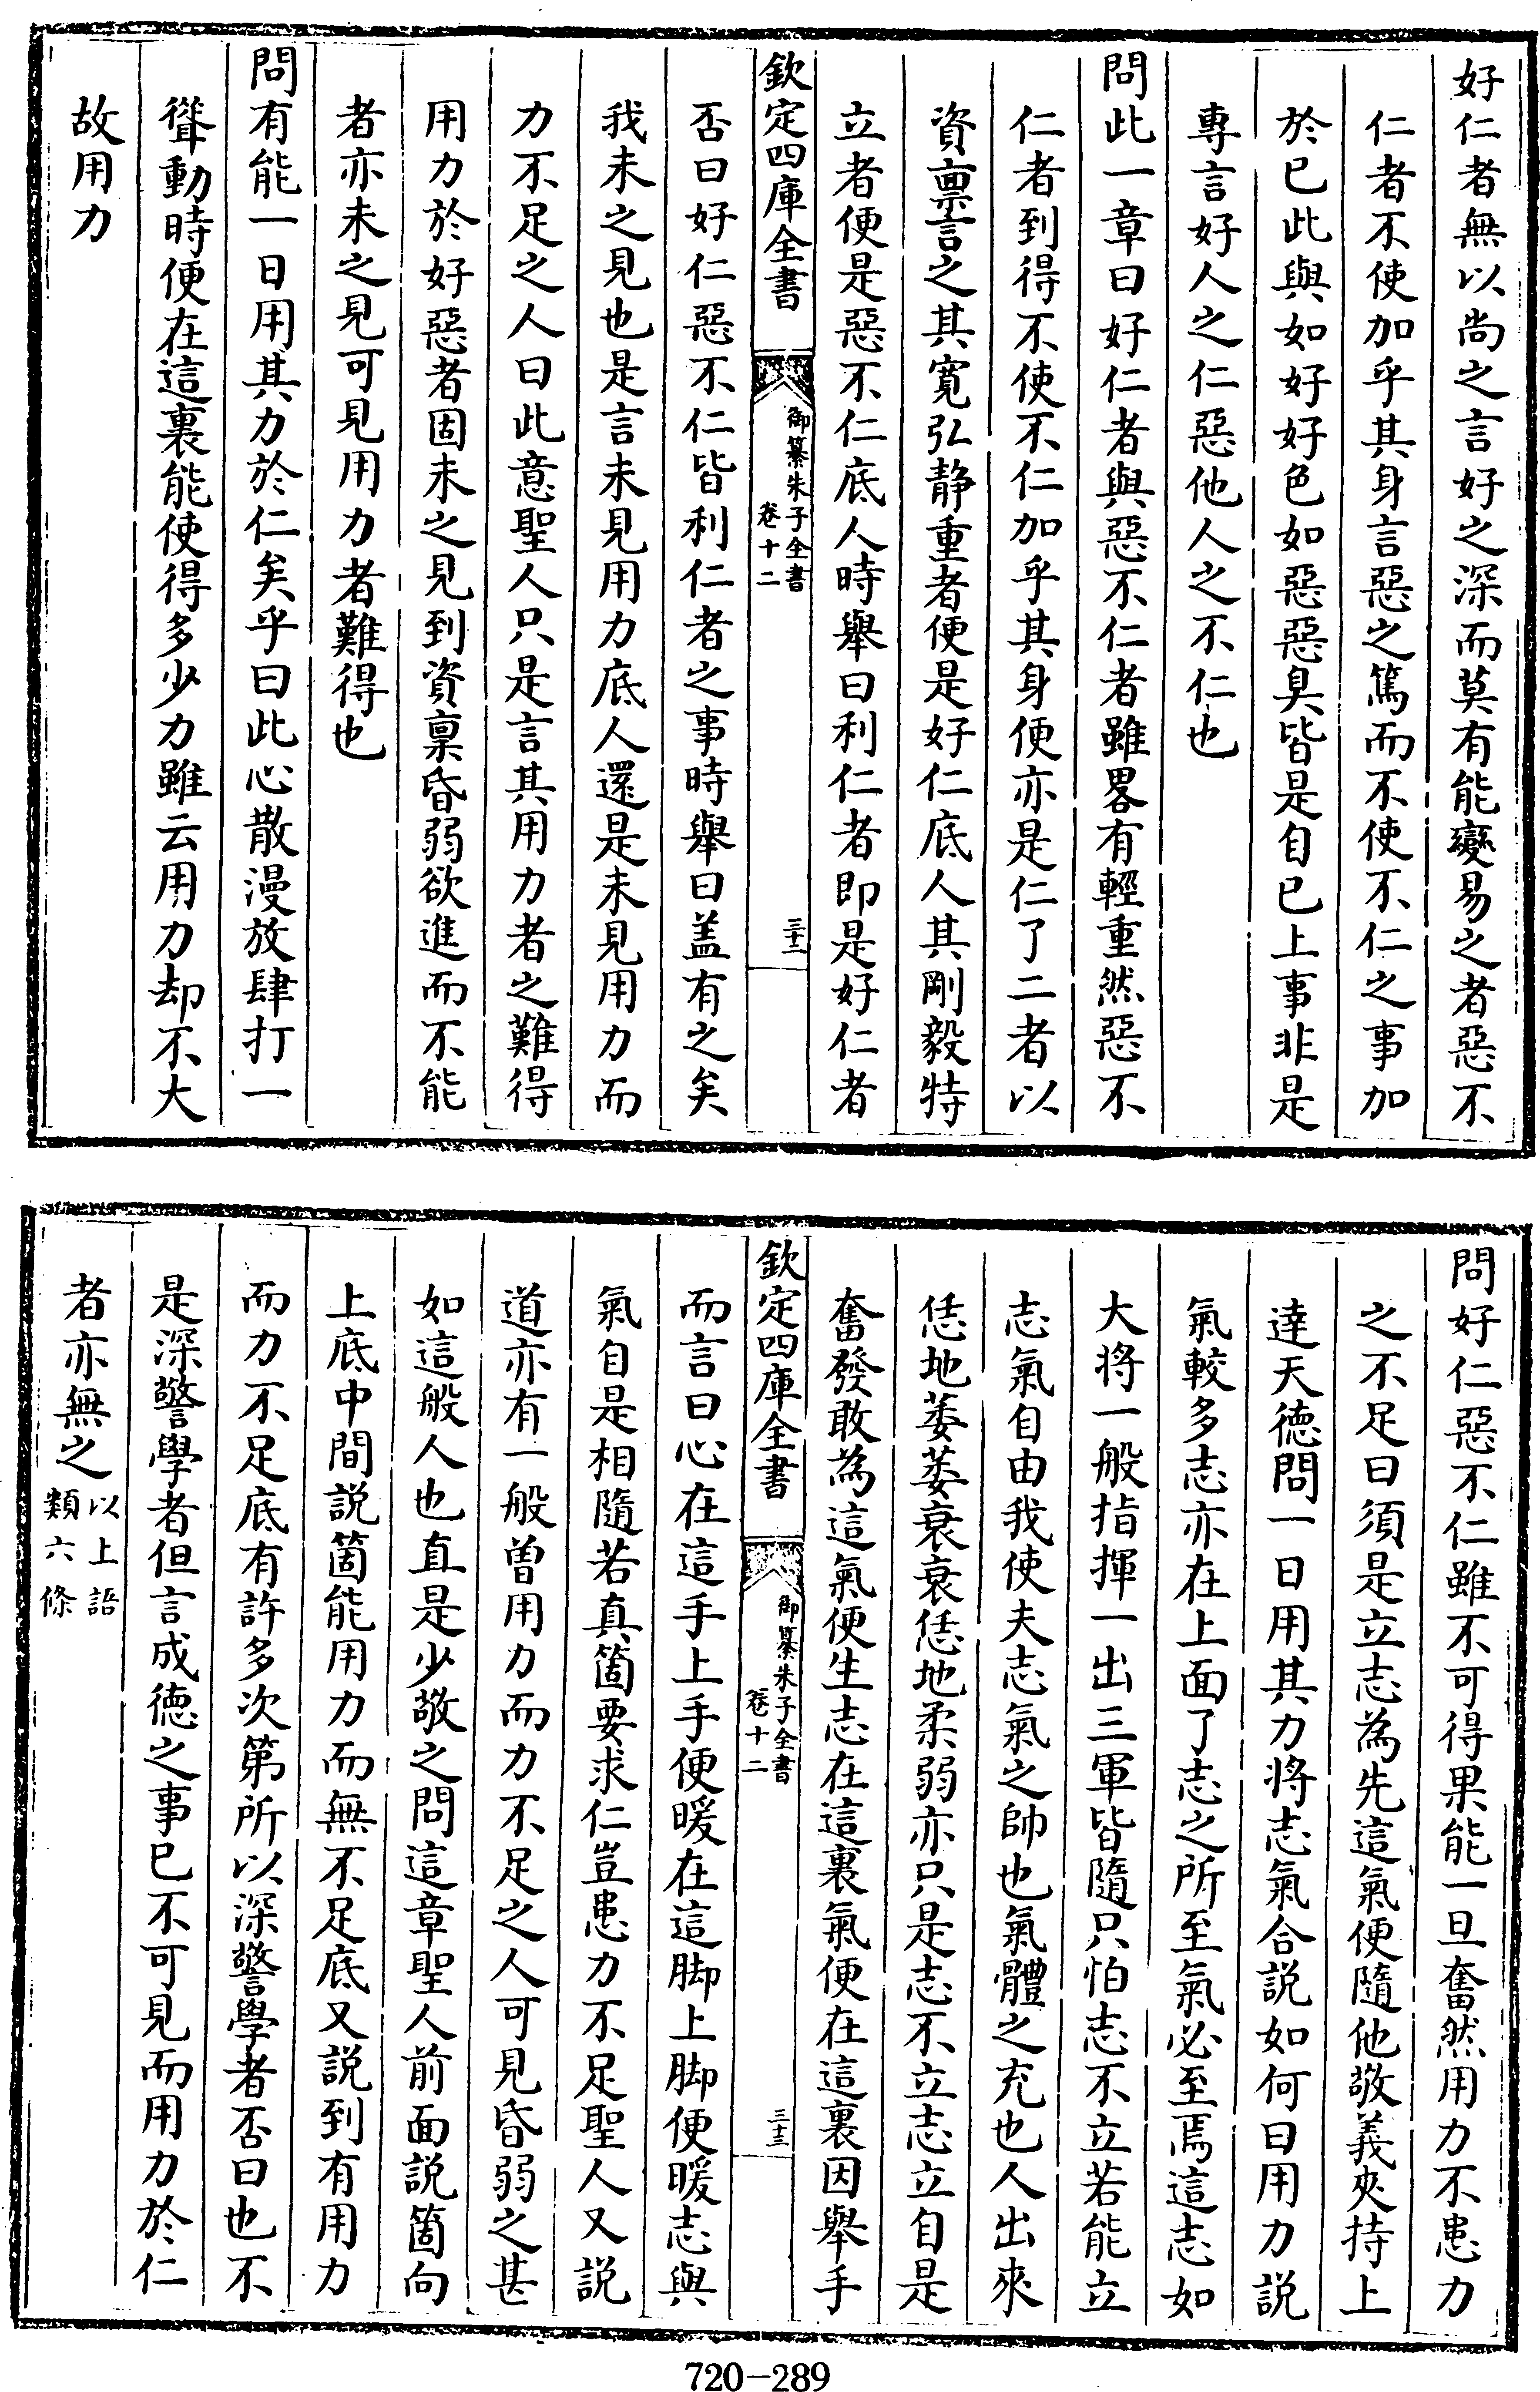 好仁者無以尚之言好之深而莫有能變易之者惡不
仁者不使加乎其身言惡之篤而不使不仁之事加
於已此與如好好色如惡惡臭皆是自已上事非是
專言好人之仁惡他人之不仁也
問此一章曰好仁者與惡不仁者雖畧有輕重然惡不
仁者到得不使不仁加乎其身便亦是仁了二者以
資禀言之其寛弘静重者便是好仁底人其剛毅特
立者便是惡不仁底人時舉曰利仁者即是好仁者
欽定四庫全書
御纂朱子全書
卷十二
三十二
否曰好仁惡不仁皆利仁者之事時舉曰盖有之矣
我未之見也是言未見用力底人還是未見用力而
力不足之人曰此意聖人只是言其用力者之難得
用力於好惡者固未之見到資禀昏弱欲進而不能
者亦未之見可見用力者難得也
問有能一日用其力於仁矣乎曰此心散漫放肆打一
聳動時便在這裏能使得多少力雖云用力却不大
故用力
問好仁惡不仁雖不可得果能一旦奮然用力不患力
之不足曰須是立志為先這氣便隨他敬義夾持上
達天德問一日用其力將志氣合説如何曰用力説
氣較多志亦在上面了志之所至氣必至焉這志如
大將一般指揮一出三軍皆隨只怕志不立若能立
志氣自由我使夫志氣之帥也氣體之充也人出來
恁地萎萎衰衰恁地柔弱亦只是志不立志立自是
奮發敢為這氣便生志在這裏氣便在這裏因舉手
欽定四庫全書
御纂朱子全書
卷十二
三十三
而言曰心在這手上手便暖在這脚上脚便暖志與
氣自是相隨若真箇要求仁豈患力不足聖人又説
道亦有一般曽用力而力不足之人可見昏弱之甚
如這般人也直是少敬之問這章聖人前面説箇向
上底中間説箇能用力而無不足底又説到有用力
而力不足底有許多次第所以深警學者否曰也不
是深警學者但言成德之事已不可見而用力於仁
者亦無之
以上語
類六條
720-289